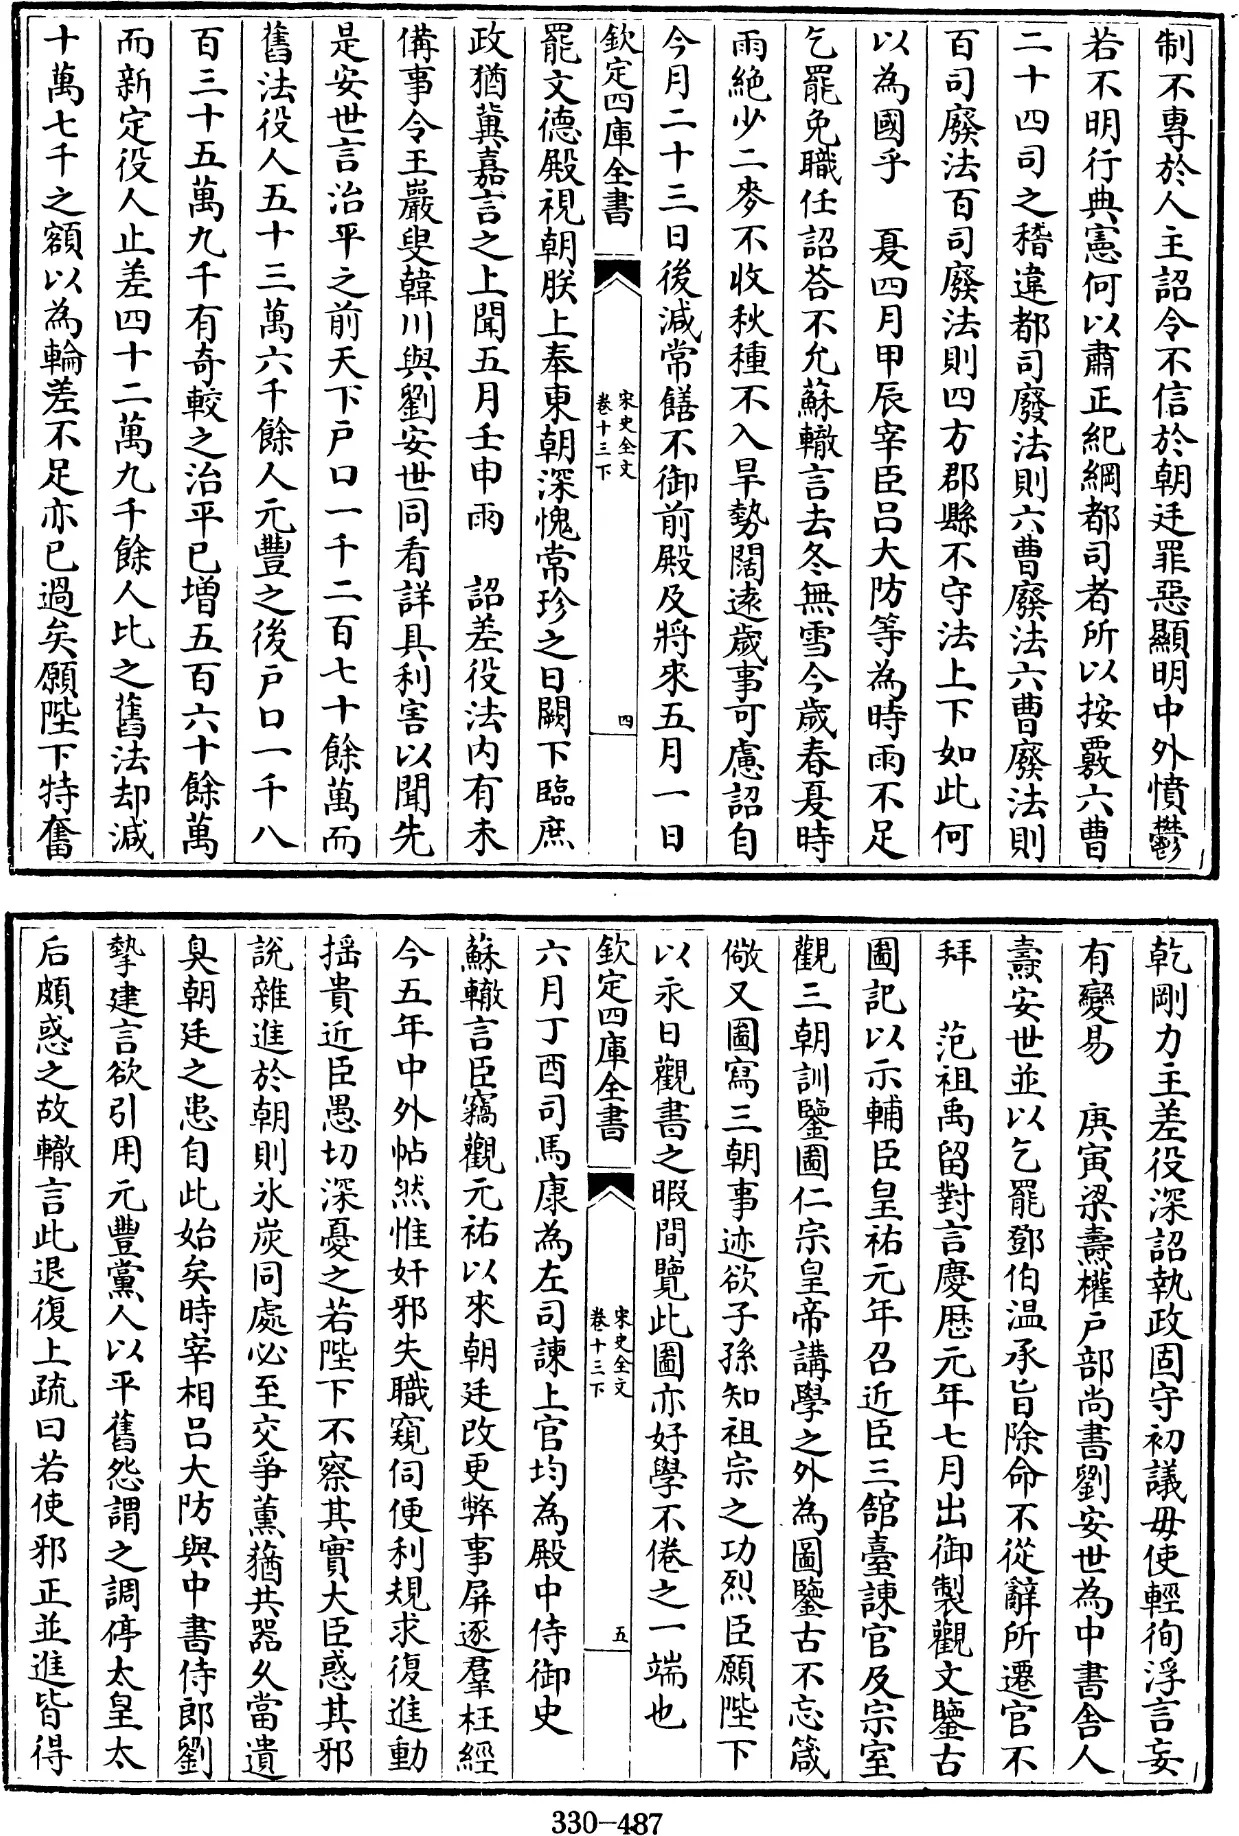 制不專於人主詔令不信於朝廷罪惡顯明中外憤鬱
若不明行典憲何以肅正紀綱都司者所以按覈六曹
二十四司之稽違都司廢法則六曹廢法六曹廢法則
百司廢法百司廢法則四方郡縣不守法上下如此何
以為國乎　夏四月甲辰宰臣吕大防等為時雨不足
乞罷免職任詔荅不允蘇轍言去冬無雪今歲春夏時
雨絶少二麥不收秋種不入旱勢闊逺歲事可慮詔自
今月二十三日後減常饍不御前殿及將來五月一日
欽定四庫全書
宋史全文
卷十三下
四
罷文德殿視朝朕上奉東朝深愧常珍之日闕下臨庶
政猶冀嘉言之上聞五月壬申雨　詔差役法内有未
僃事令王巖叟韓川與劉安世同看詳具利害以聞先
是安世言治平之前天下户口一千二百七十餘萬而
舊法役人五十三萬六千餘人元豐之後户口一千八
百三十五萬九千有奇較之治平已增五百六十餘萬
而新定役人止差四十二萬九千餘人比之舊法却減
十萬七千之額以為輪差不足亦已過矣願陛下特奮
乾剛力主差役深詔執政固守初議毋使輕徇浮言妄
有變易　庚寅梁燾權户部尚書劉安世為中書舍人
燾安世並以乞罷鄧伯温承旨除命不從辭所遷官不
拜　范祖禹留對言慶厯元年七月出御製觀文鑒古
圖記以示輔臣皇祐元年召近臣三舘臺諫官及宗室
觀三朝訓鑒圖仁宗皇帝講學之外為圖鑒古不忘箴
儆又圖寫三朝事迹欲子孫知祖宗之功烈臣願陛下
以永日觀書之暇間覽此圖亦好學不倦之一端也
欽定四庫全書
宋史全文
卷十三下
五
六月丁酉司馬康為左司諫上官均為殿中侍御史
蘇轍言臣竊觀元祐以來朝廷改更弊事屏逐羣枉經
今五年中外帖然惟奸邪失職窺伺便利規求復進動
揺貴近臣愚切深憂之若陛下不察其實大臣惑其邪
說雜進於朝則氷炭同處必至交爭薰猶共器久當遺
臭朝廷之患自此始矣時宰相吕大防與中書侍郎劉
摯建言欲引用元豐黨人以平舊怨謂之調停太皇太
后頗惑之故轍言此退復上疏曰若使邪正並進皆得
330-487